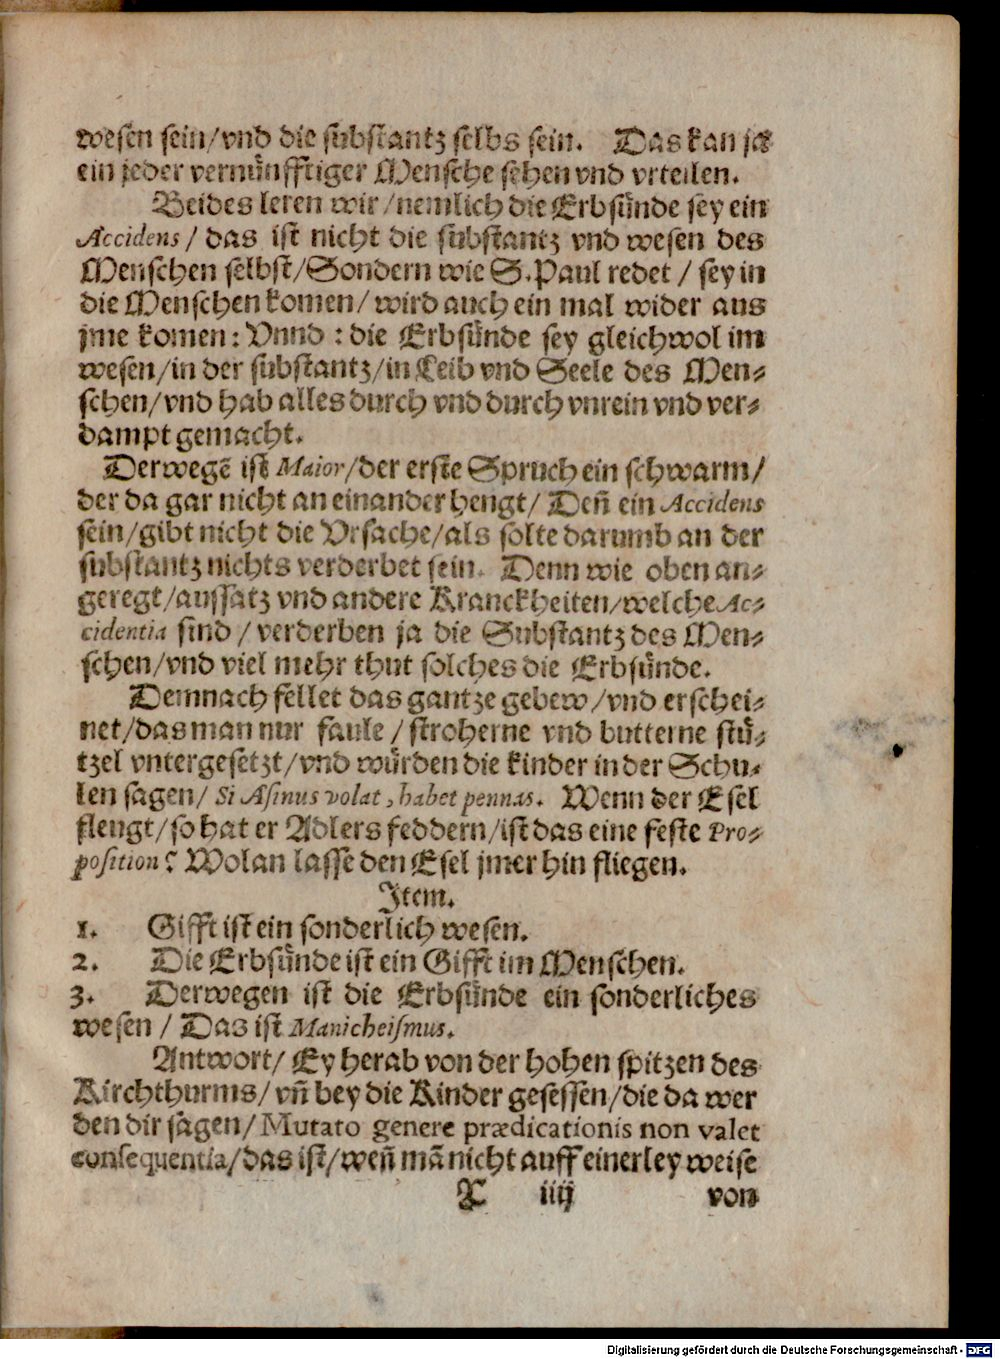 wesen sein/vnd die substantz selbs sein. Das kan ja
ein jeder vernünfftiger Mensche sehen vnd vrteilen.
Beides leren wir/nemlich die Erbsünde sey ein
Accidens/ das ist nicht die substantz vnd wesen des
Menschen selbst/Sondern wie S. Paul redet/ sey in
die Menschen komen/ wird auch ein mal wider aus
jme komen: Vnnd: die Erbsünde sey gleichwol im
wesen/in der substantz/in Leib vnd Seele des Men⸗
schen/vnd hab alles durch vnd durch vnrein vnd ver⸗
dampt gemacht.
Derwegẽ ist Maior/der erste Spruch ein schwarm/
der da gar nicht an einander hengt/ Deñ ein Accidens
sein/gibt nicht die Vrsache/als solte darumb an der
substantz nichts verderbet sein. Denn wie oben an⸗
geregt/aussatz vnd andere Kranckheiten/welche Ac⸗
cidentia sind/ verderben ja die Substantz des Men⸗
schen/vnd viel mehr thut solches die Erbsünde.
Demnach fellet das gantze gebew/vnd erschei⸗
net/das man nur faule/ stroherne vnd butterne stü⸗
tzel vntergesetzt/vnd würden die kinder in der Schu⸗
len sagen/ Si Asinus volat, habet pennas. Wenn der Esel
fleugt/so hat er Adlers feddern/ist das eine feste Pro⸗
position? Wolan lasse den Esel jmer hin fliegen.
Item.
1. Gifft ist ein sonderlich wesen.
2. Die Erbsünde ist ein Gifft im Menschen.
3. Derwegen ist die Erbsünde ein sonderliches
wesen/ Das ist Manicheiſmus.
Antwort/ Ey herab von der hohen spitzen des
Kirchthurms/ vñ bey die Kinder gesessen/die da wer
den dir sagen/ Mutato genere prædicationis non valet
consequentia/das ist/weñ mã nicht auff einerley weise
X iiij von
Digitalisierung gefördert durch die Deutsche Forschungsgemeinschaft - DFG